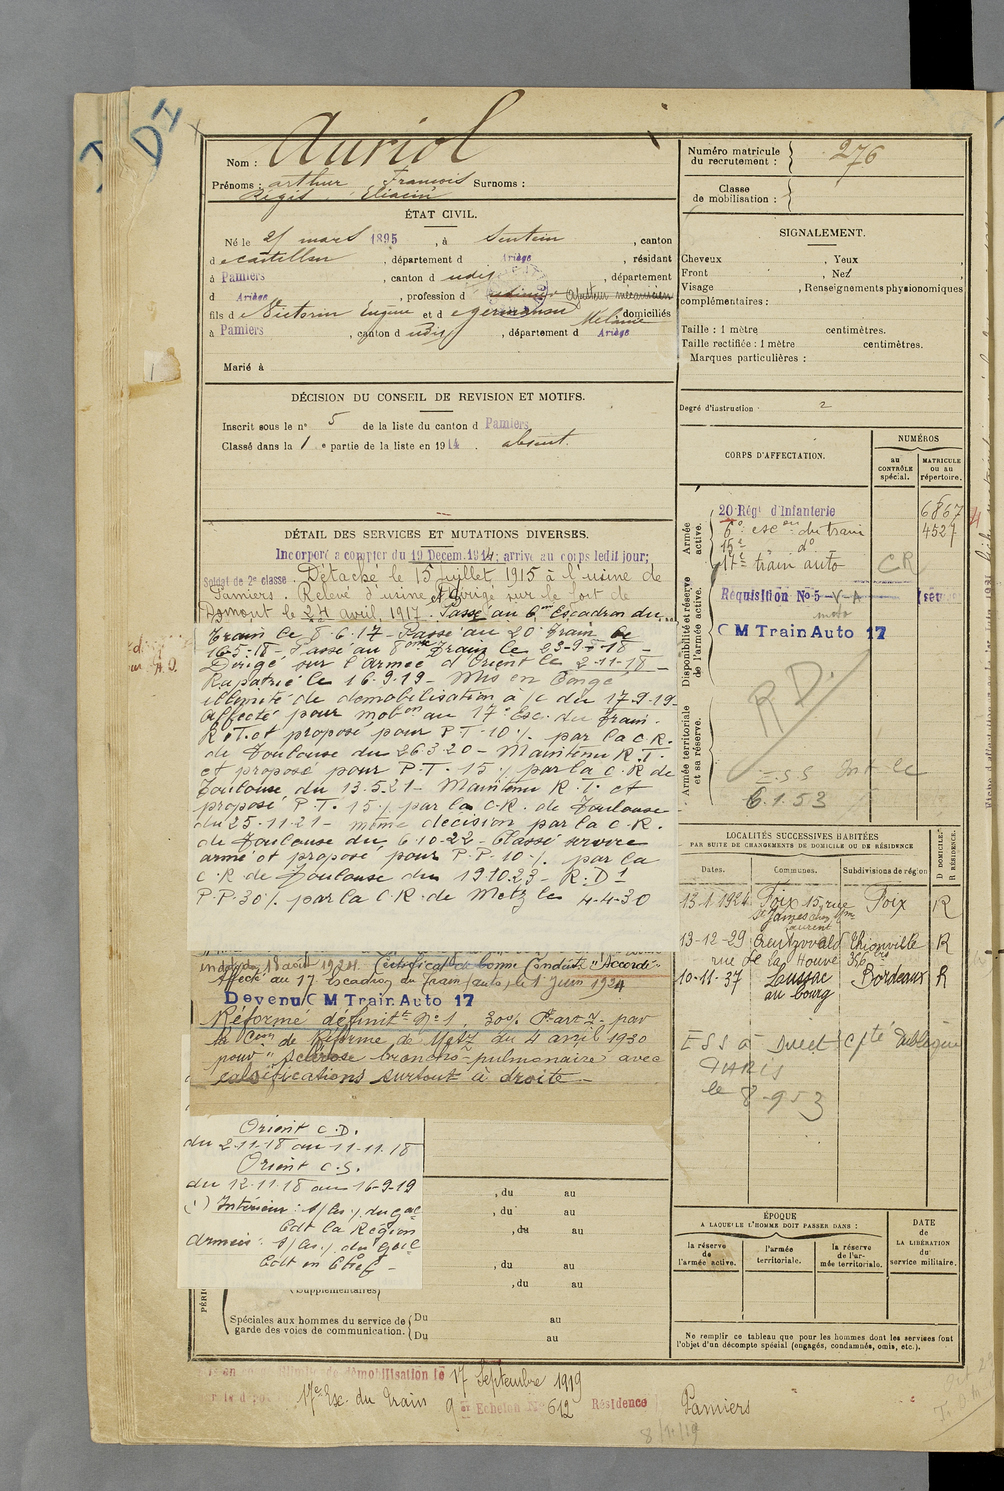 D1
Nom : Auriol
Prénoms : arthur François Surnoms :
Régis Eliacin
ÉTAT CIVIL.
Né le 21 mars 1895, à Sentein, canton
de Castillon, département d Ariège, résidant
à Pamiers, canton d udis, département
d Ariège, profession d Ajusteur mécanicien
fils de Victorin Eugène et de Germanou Mélanie domiciliés
à Pamiers, canton d udis, département d Ariège
Marié à
DÉCISION DU CONSEIL DE REVISION ET MOTIFS.
Inscrit sous le n° 5 de la liste du canton d Pamiers
Classé dans la 1 e partie de la liste en 1914. absent.
DÉTAIL DES SERVICES ET MUTATIONS DIVERSES.
Incorporé a compter du 19 Decem. 1914; arrivé au corps ledit jour;
Soldat de 2e classe. Détaché le 15 juillet 1915 à l'usine de
Pamiers. Relevé d'usine et Dirigé sur le fort de
Domont le 24 avril 1917. Passé au 6me Escadron du
Train le 8-6-17 - Passé au 20 Train le
16-5-18 - Passé au 8ème Train le 23-9-18 -
Dirigé sur l'Armée d'Orient le 2-11-18 -
Rapatrié le 16-9-19 - Mis en congé
illimité de demobilisation à/c du 17-9-19 -
Affecté pour mobon au 17e Esc. du Train.
R.T. et proposé pour P.T. 10% par la C.R.
de Toulouse du 26-3-20 - Maintenu R.T.
et proposé pour P.T. 15% par la C.R de
Toulouse du 13-5-21 - Maintenu R.T. et
proposé P.T. 15% par la C.R. de Toulouse
du 25-11-21 - même décision par la C.R.
de Toulouse du 6-10-22 - Classé service
armé et proposé pour P.P. 10% par la
C.R de Toulouse du 19-10-23 - R.D 1
P.P. 30% par la C.R. de Metz le 4-4-30
18 août 1924. Certificat de bonne Conduite "Accordé"
Affecté au 17 Escadron du Train (auto) le 1 Juin 1924
Devenu C M Train Auto 17
Réformé définitt N° 1. 30% par
la Comn de Réforme de Metz du 4 avril 1930
pour "Sclérose broncho-pulmonaire avec
calcifications surtout à droite -
Orient C.D.
du 2-11-18 au 11-11-18
Orient C.S.
du 12-11-18 au 16-9-19
(1) Intérieur : du Gal
Cdt la Région
Armées : du Gal
Cdt en Chef -
, du au
, du au
, du au
, du au
(Supplémentaires) , du au
Spéciales aux hommes du service de garde des voies de communication. Du au
Du au
démobilisation le 17 Septembre 1919
17e Esc. du Train 9me Echelon N° 612 Résidence Pamiers
8/10/19
Numéro matricule du recrutement : 276
Classe de mobilisation :
SIGNALEMENT.
Cheveux , Yeux
Front , Nez
Visage , Renseignements physionomiques
complémentaires :
Taille : 1 mètre centimètres.
Taille rectifiée : 1 mètre centimètres.
Marques particulières :
Degré d'instruction : 2
CORPS D'AFFECTATION.
NUMÉROS
au CONTRÔLE spécial.
MATRICULE ou au répertoire.
Armée active.
20 Régt d'Infanterie 6867
6e escon du train 4527
15e do
17e train auto CR
Disponibilité et réserve de l'armée active.
Réquisition No 5 - V-A
C M Train Auto 17
RD
Armée territoriale et sa réserve.
6.1.53
LOCALITÉS SUCCESSIVES HABITÉES
PAR SUITE DE CHANGEMENTS DE DOMICILE OU DE RÉSIDENCE
Dates. Communes. Subdivisions de région
D DOMICILE. R RÉSIDENCE.
13-1-1924 Foix 15, rue Foix R
St James chez Mme
Laurent
13-12-29 Creutzwald Thionville R
rue de la Houve 356 bis
10-11-37 Lussac Bordeaux R
au bourg
PARIS
le 8-9-53
ÉPOQUE
A LAQUELLE L'HOMME DOIT PASSER DANS :
DATE DE LA LIBÉRATION du service militaire.
la réserve de l'armée active.
l'armée territoriale.
la réserve de l'armée territoriale.
Ne remplir ce tableau que pour les hommes dont les services font
l'objet d'un décompte spécial (engagés, condamnés, omis, etc.).